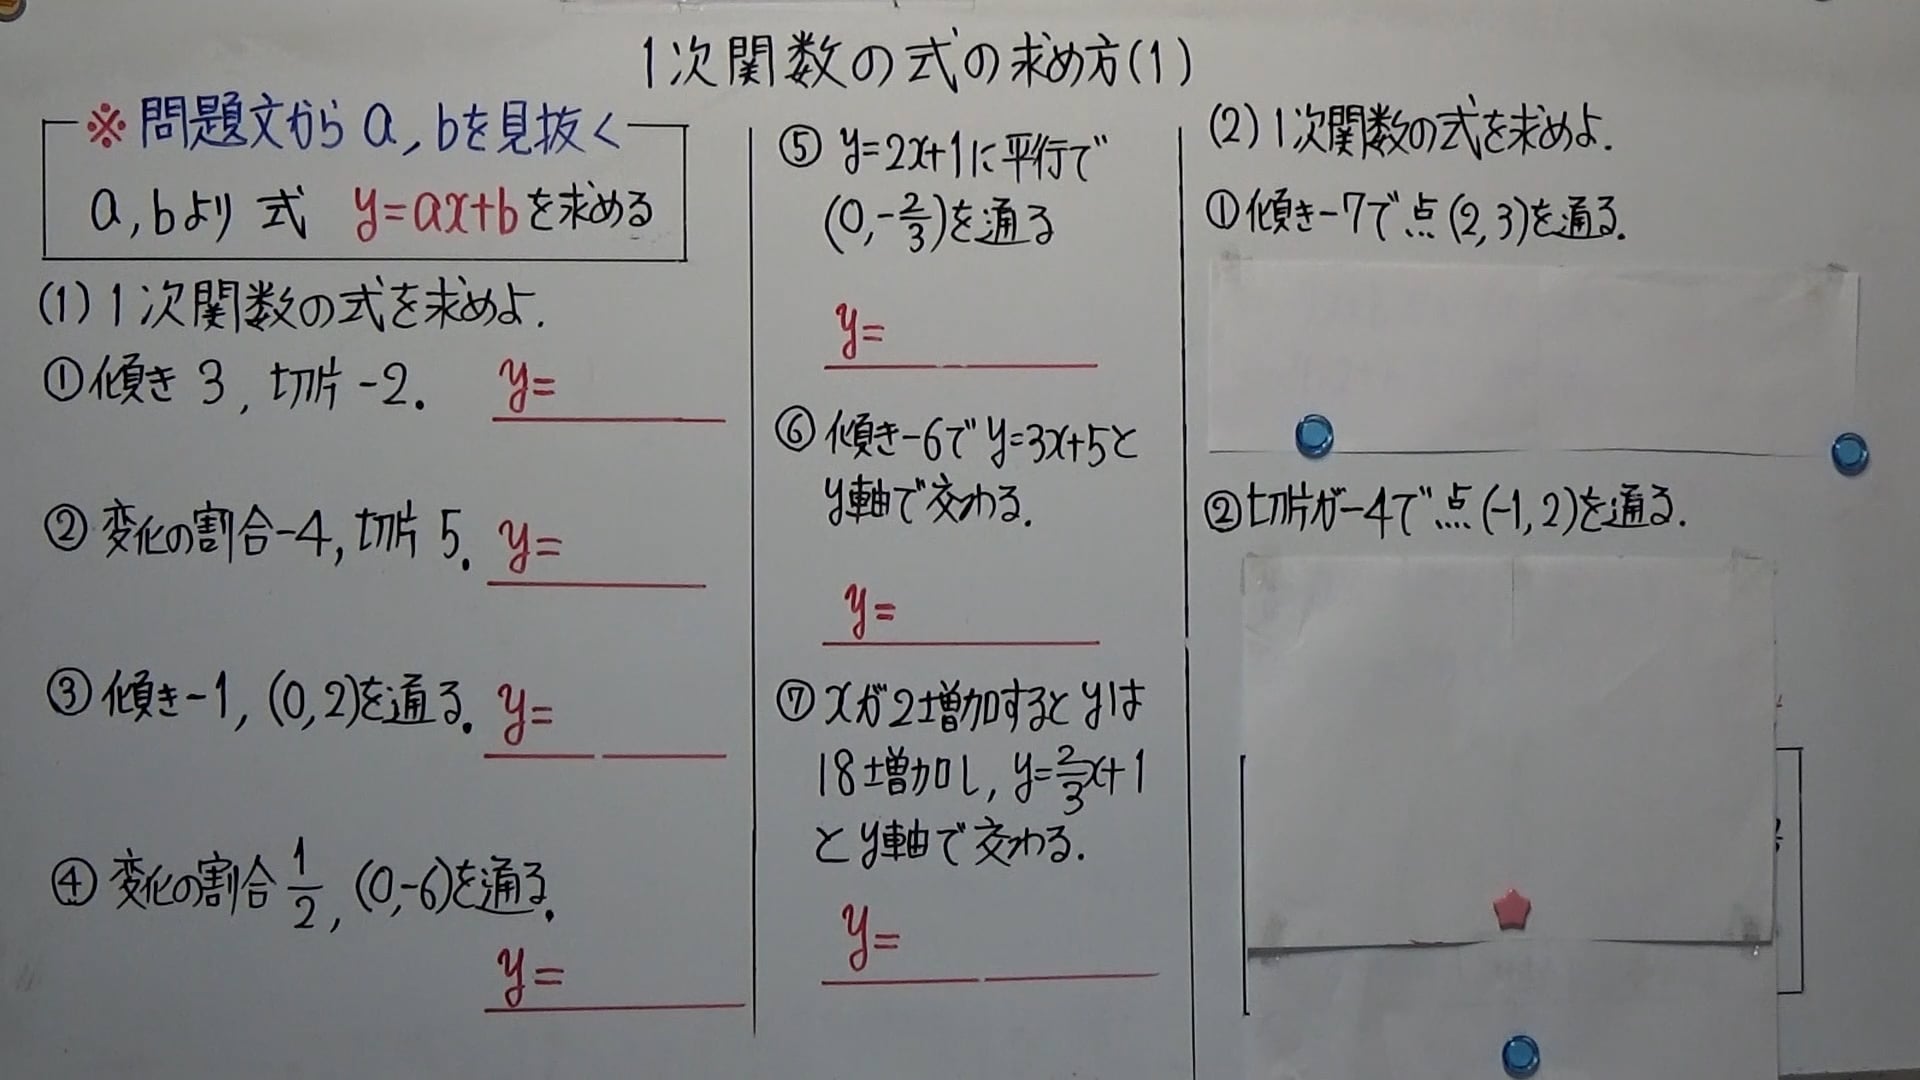 1次関数の式の求め方(1)
※問題文からa,bを見抜く
a,bより 式 y=ax+bを求める
(1)1次関数の式を求めよ.
①傾き 3, 切片 -2. y=
②変化の割合-4,切片 5. y=
③傾き-1,(0,2)を通る. y=
④変化の割合1/2,(0,-6)を通る.
y=
⑤y=2x+1に平行で
(0,-2/3)を通る
y=
⑥傾き-6でy=3x+5と
y軸で交わる.
y=
⑦xが2増加するとyは
18増加し,y=2/3x+1
とy軸で交わる.
y=
(2)1次関数の式を求めよ.
①傾き-7で点(2,3)を通る.
②切片が-4で点(-1,2)を通る.